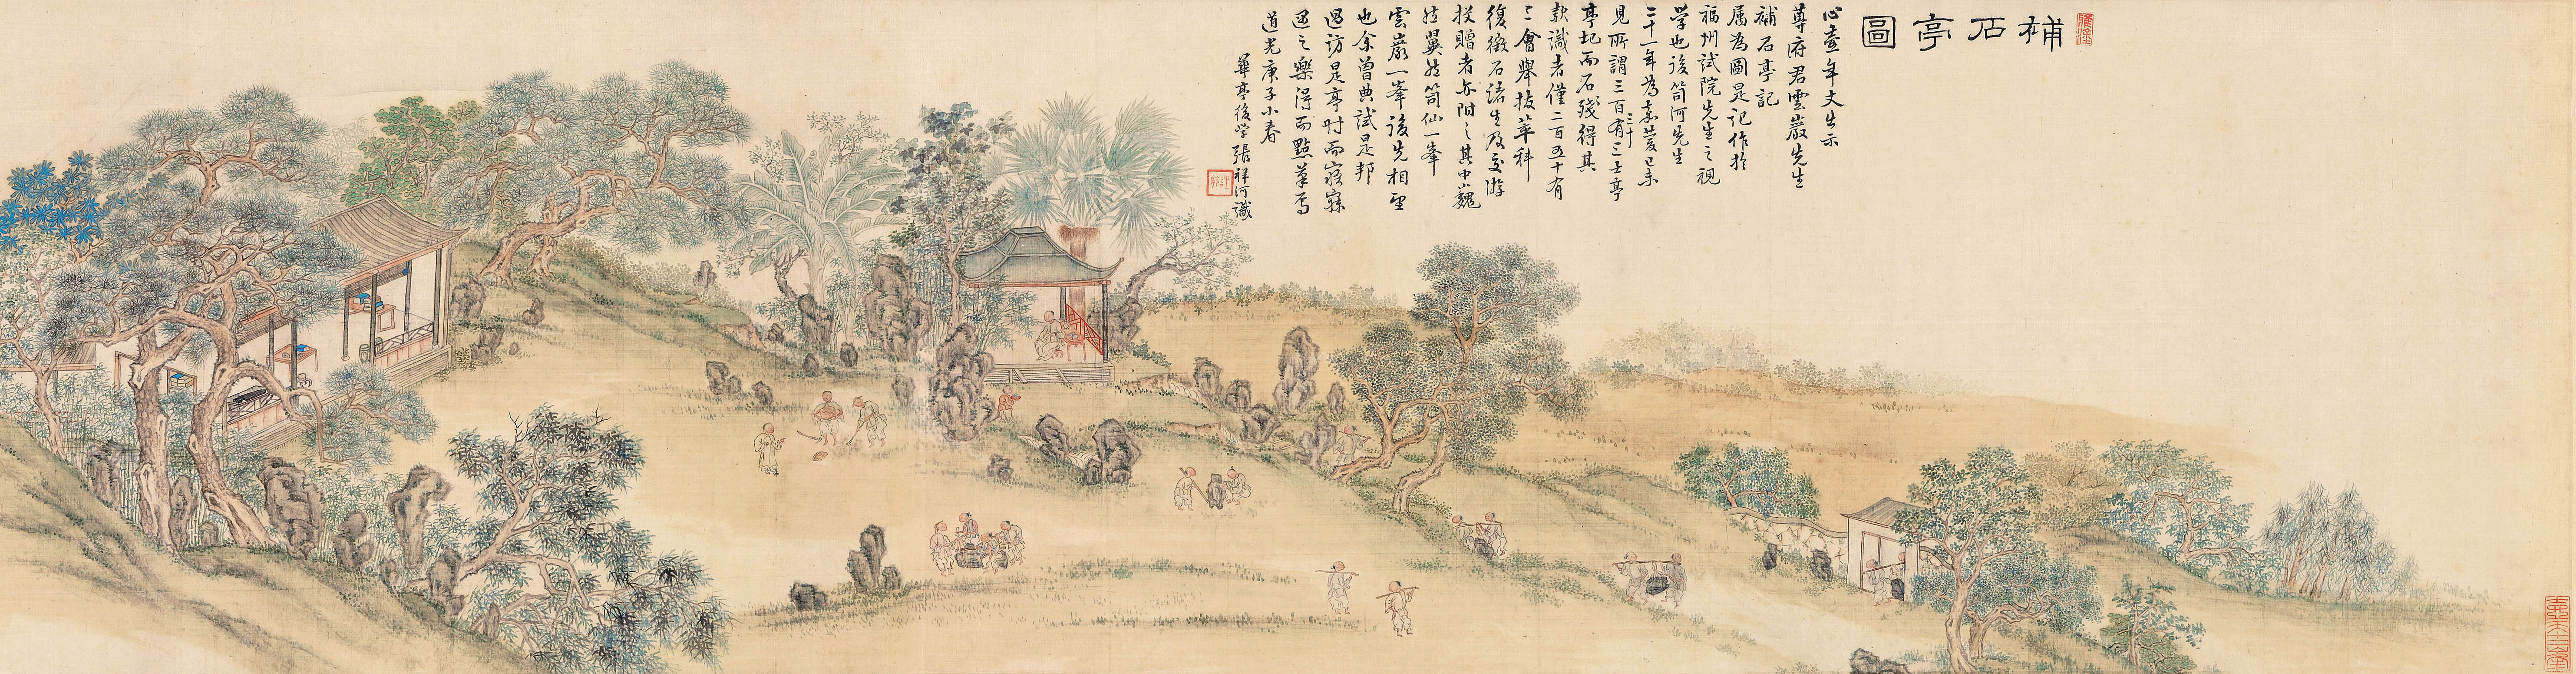 補石亭圖
心壺年丈出示
尊府君雲巖先生
補石亭記
属為圖是記作於
福州試院先生之視
学也後笥河先生
二十一年為嘉慶己未
見所謂三百有三十三士亭
亭圮而石殘得其
款識者僅二百五十有
三會舉拔萃科
復徵石諸生及交游
投贈者亦附之其中巍
然翼然笥仙一峯
雲巖一峯後先相望
也余曾典試是邦
過訪是亭時而寤寐
道光庚子小春
華亭後学張祥河識